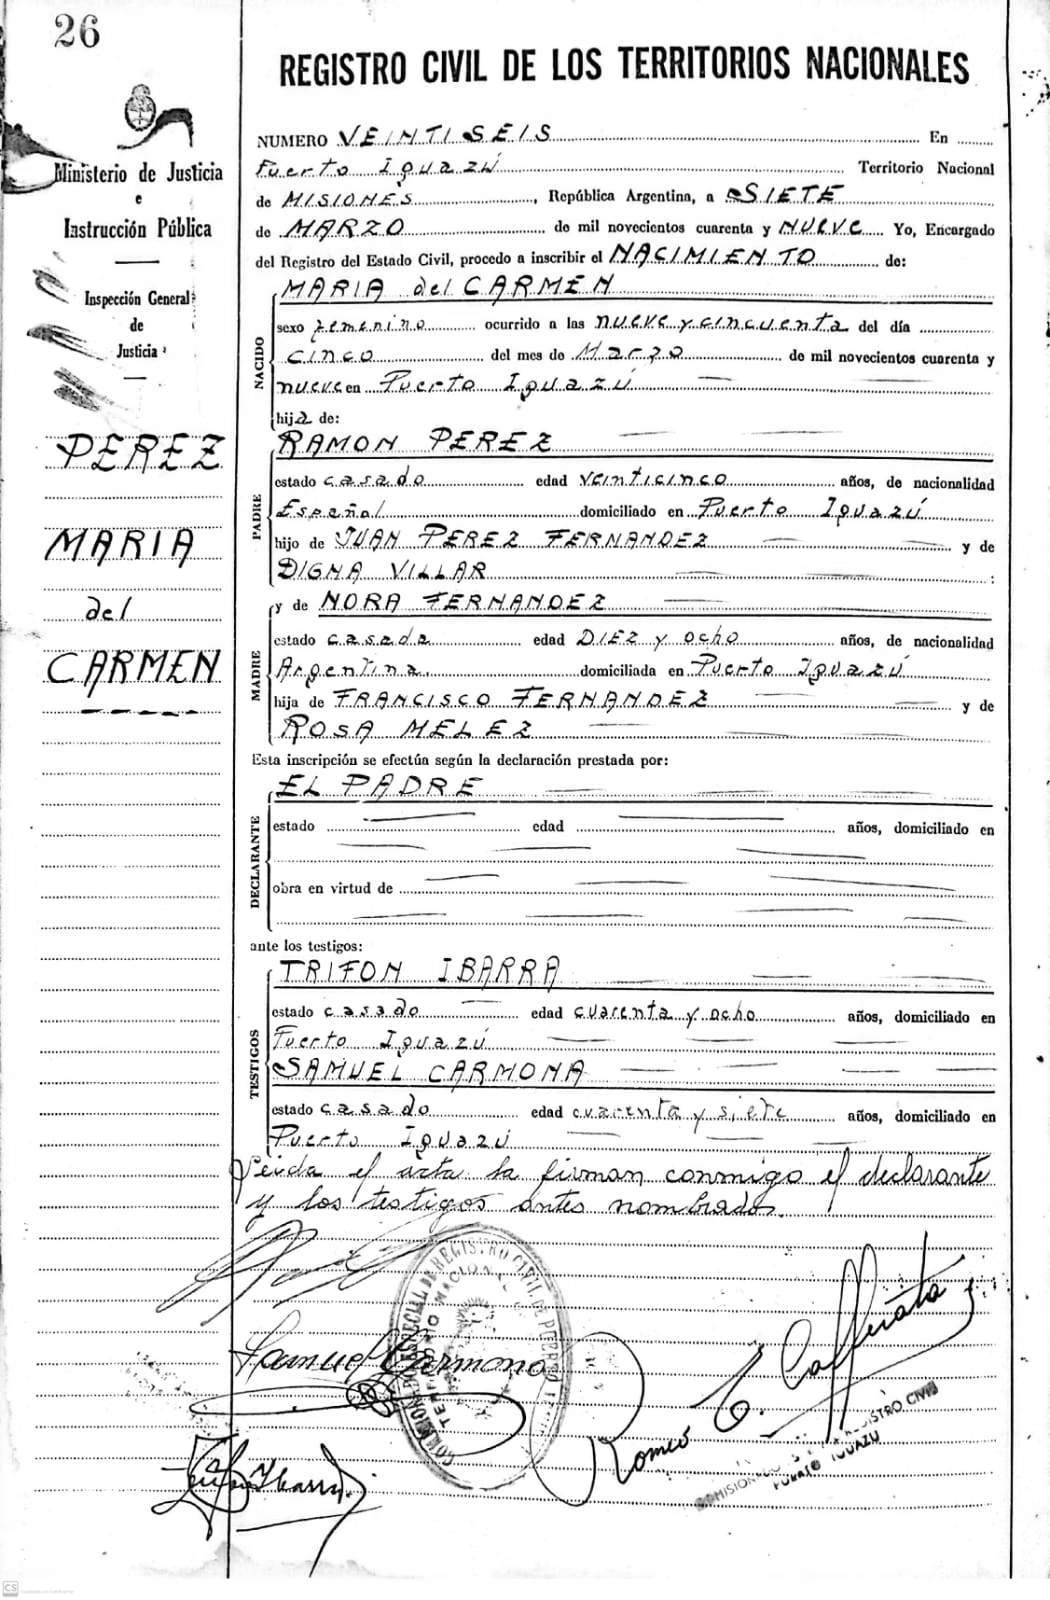 26
REGISTRO CIVIL DE LOS TERRITORIOS NACIONALES
Ministerio de Justicia
e
Instrucción Pública
Inspección General
de
Justicia
PEREZ
MARIA
del
CARMEN
NUMERO VEINTISEIS En
Puerto Iguazú Territorio Nacional
de MISIONES, República Argentina, a SIETE
de MARZO de mil novecientos cuarenta y NUEVE Yo, Encargado
del Registro del Estado Civil, procedo a inscribir el NACIMIENTO de:
NACIDO
MARIA del CARMEN
sexo femenino ocurrido a las nueve y cincuenta del día
cinco del mes de Marzo de mil novecientos cuarenta y
nueve en Puerto Iguazú
hija de:
PADRE
RAMON PEREZ
estado casado edad veinticinco años, de nacionalidad
Español domiciliado en Puerto Iguazú
hijo de JUAN PEREZ FERNANDEZ y de
DIGNA VILLAR :
MADRE
y de NORA FERNANDEZ
estado casada edad DIEZ y ocho años, de nacionalidad
Argentina. domiciliada en Puerto Iguazú
hija de FRANCISCO FERNANDEZ y de
ROSA MELEZ
Esta inscripción se efectúa según la declaración prestada por:
DECLARANTE
EL PADRE
estado edad años, domiciliado en
obra en virtud de
ante los testigos:
TESTIGOS
TRIFON IBARRA
estado casado edad cuarenta y ocho años, domiciliado en
Puerto Iguazú
SAMUEL CARMONA
estado casado edad cuarenta y siete años, domiciliado en
Puerto Iguazú
Leida el acta la firman conmigo el declarante
y los testigos antes nombrados.
REGISTRO CIVIL DE
Samuel Carmona
Romeo E. Cafferata
REGISTRO CIVIL
PUERTO IGUAZU
Ibarra
CS